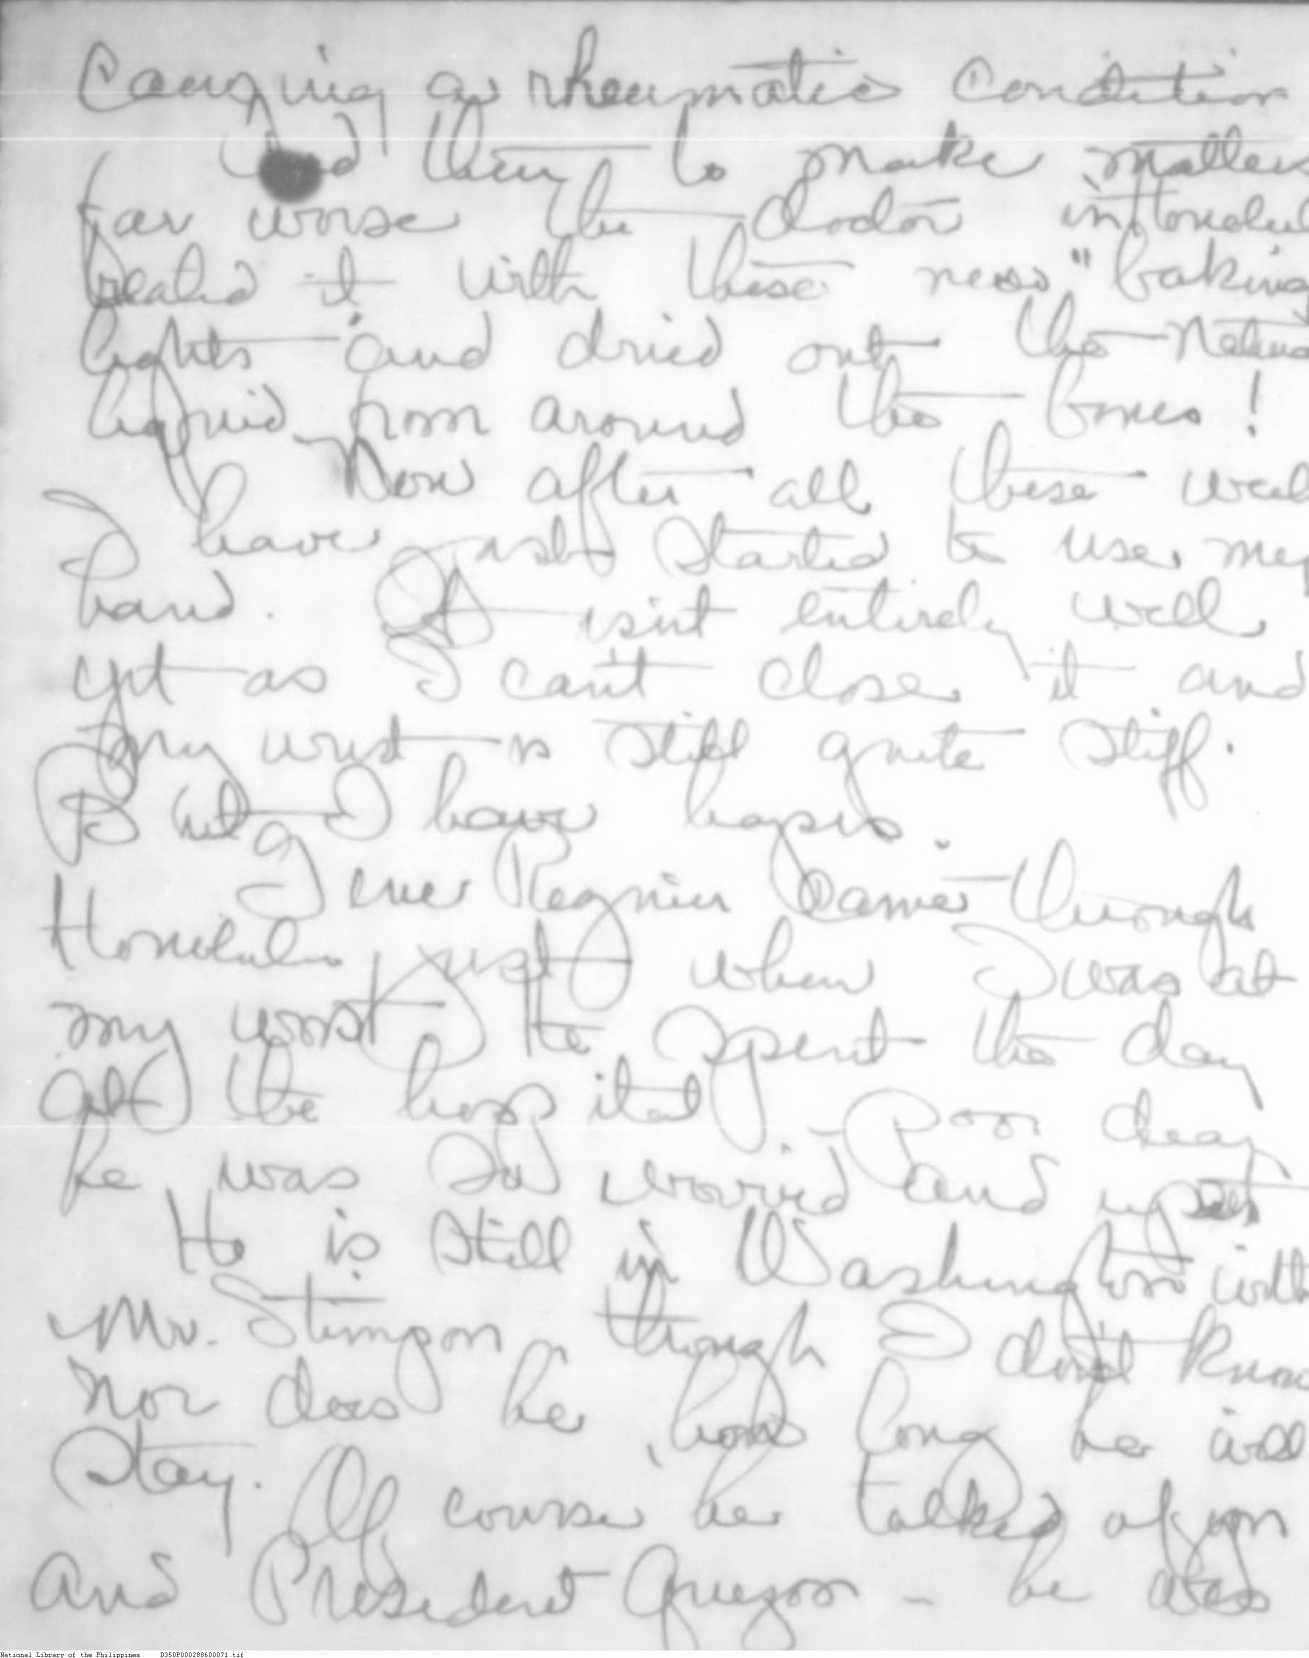 Causing a rheumatic condition
And then to make matters
far worse the doctor in Honolul
treated it with these new "baking
lights" and dried out the natural
liquid from around the bones!
Now after all these
I have just started to use my
hand. It isn't entirely well
yet as I can't close it and
my wrist is still quite stiff.
But I have hopes.
Regnier came through
Honolulu just when I was at
my worst. He spent the day
at the hospital. Poor dear
he was so worried and upset
He is still in Washington with
Mr. Stimson though I don't know
nor does he how long he will
stay. Of course he talked of you
and President Quezon - he also
National Library of the Philippines D350P000288600071.tif